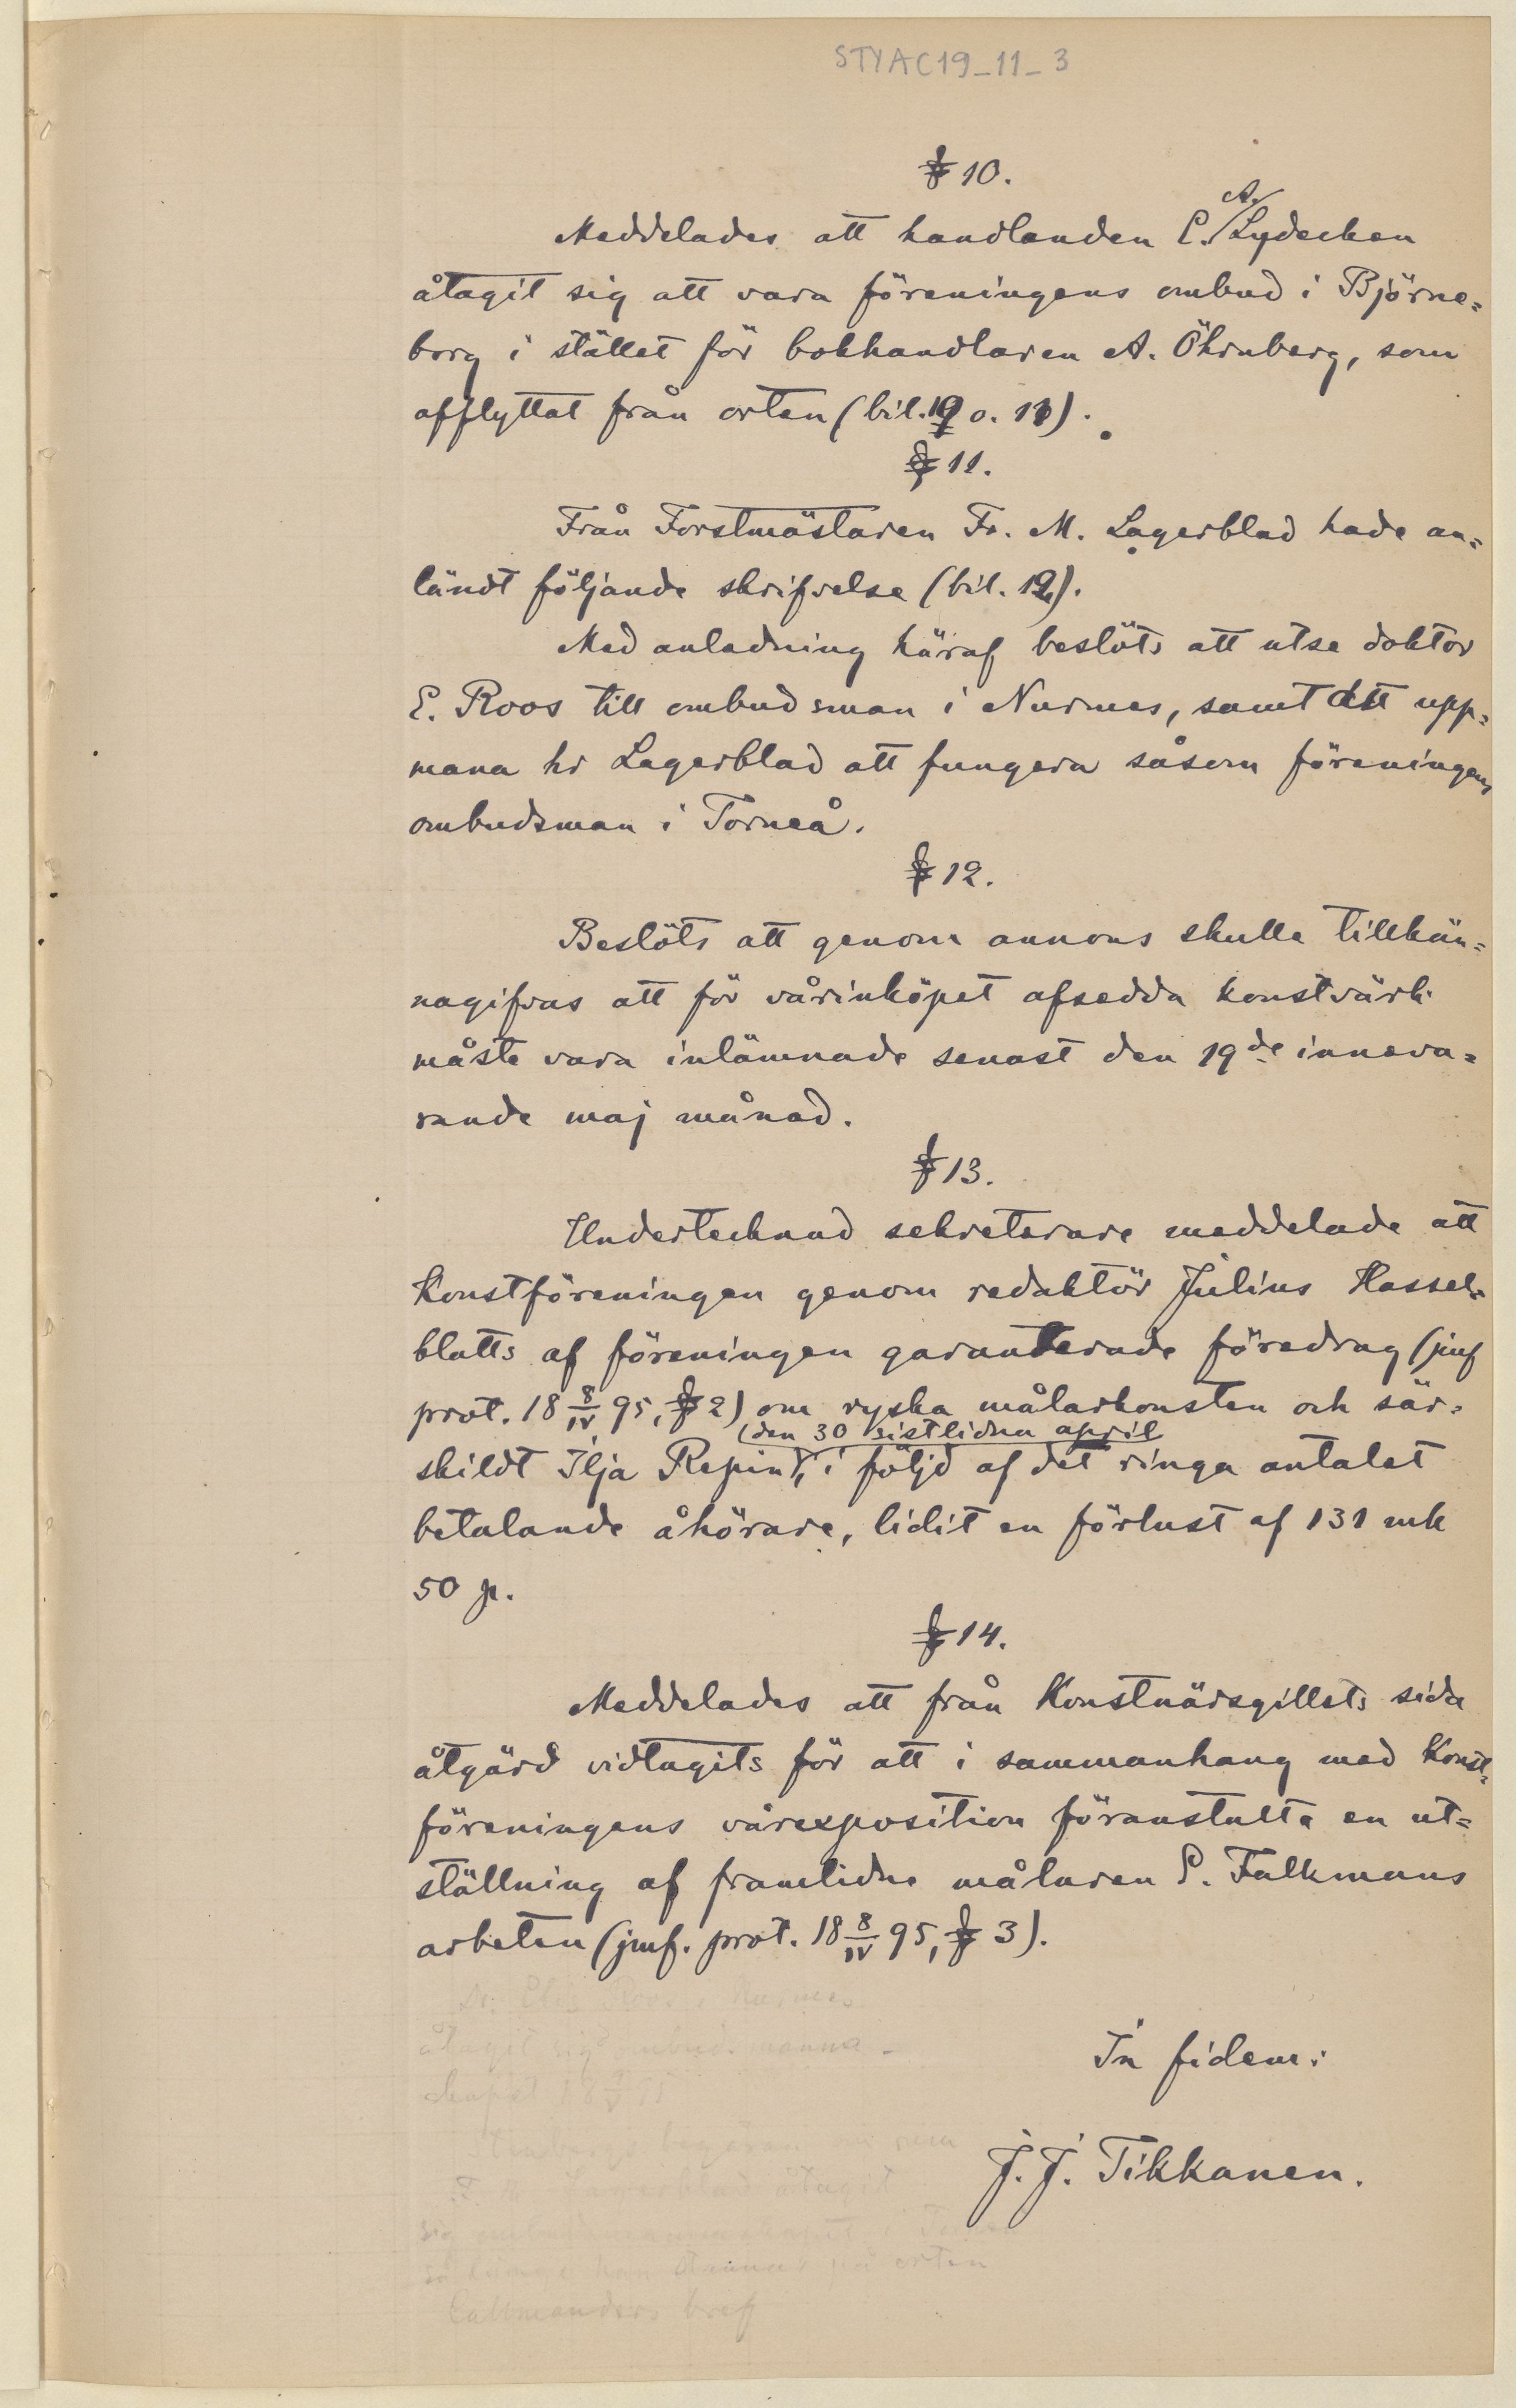 STYAC19_11_3
§ 10.
A.
Meddelades att handlanden C. Lydecken
åtagit sig att vara föreningens ombud i Björne=
borg i stället för bokhandlaren A. Öhrnberg, som
afflyttat från orten (bil. 10 o. 11).
§ 11.
Från Forstmästaren Fr. M. Lagerblad hade an=
ländt följande skrifvelse (bil. 12).
Med anledning häraf beslöts att utse doktor
E. Roos till ombudsman i Nurmes, samt att upp=
mana hr Lagerblad att fungera såsom föreningens
ombudsman i Torneå.
§ 12.
Beslöts att genom annons skulle tillkän=
nagifvas att för vårinköpet afsedda konstvärk
måste vara inlämnade senast den 19de inneva=
rande maj månad.
§ 13.
Undertecknad sekreterare meddelade att
Konstföreningen genom redaktör Julius Hassel=
blatts af föreningen garanterade föredrag (jmf
prot. 18 8/IV 95, § 2) om ryska målarkonsten och sär=
(den 30 sistlidna april
skildt Ilja Repin), i följd af det ringa antalet
betalande åhörare, lidit en förlust af 131 mk
50 p.
§ 14.
Meddelades att från Konstnärsgillets sida
åtgärd vidtagits för att i sammanhang med Konst=
föreningens vårexposition föranstalta en ut=
ställning af framlidne målaren S. Falkmans
arbeten (jmf. prot. 18 8/IV 95, § 3).
In fidem:
J. J. Tikkanen.
åtagit sig ombudsmanna-